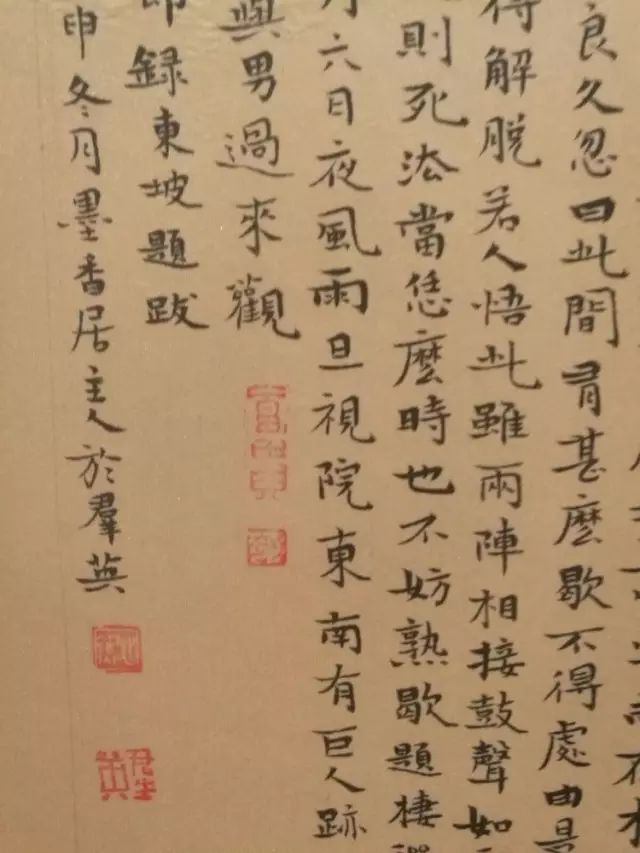 不
良久忽曰此間有甚麼歇不得處由是
得解脫若人悟此雖兩陣相接鼓聲如
則死法當恁麼時也不妨熟歇題棲
月六日夜風雨旦視院東南有巨人跡
與男過來觀
節錄東坡題跋
申冬月墨香居主人於羣英
羣英